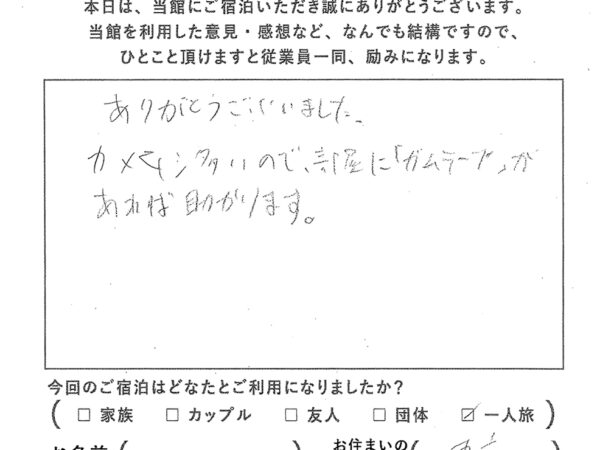 本日は、当館にご宿泊いただき誠にありがとうございます。
当館を利用した意見・感想など、なんでも結構ですので、
ひとこと頂けますと従業員一同、励みになります。
ありがとうございました。
カメムシ多いので、部屋に「ガムテープ」が
あれば助かります。
今回のご宿泊はどなたとご利用になりましたか?
(□ 家族 □ カップル □ 友人 □ 団体 ☑ 一人旅)
お名前(
) お住まいの(